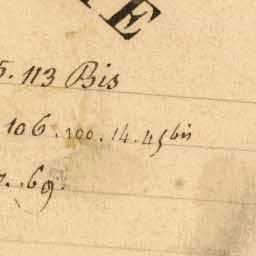 E
5. 113 Bis
106. 100. 14. 45 bis
7. 69.